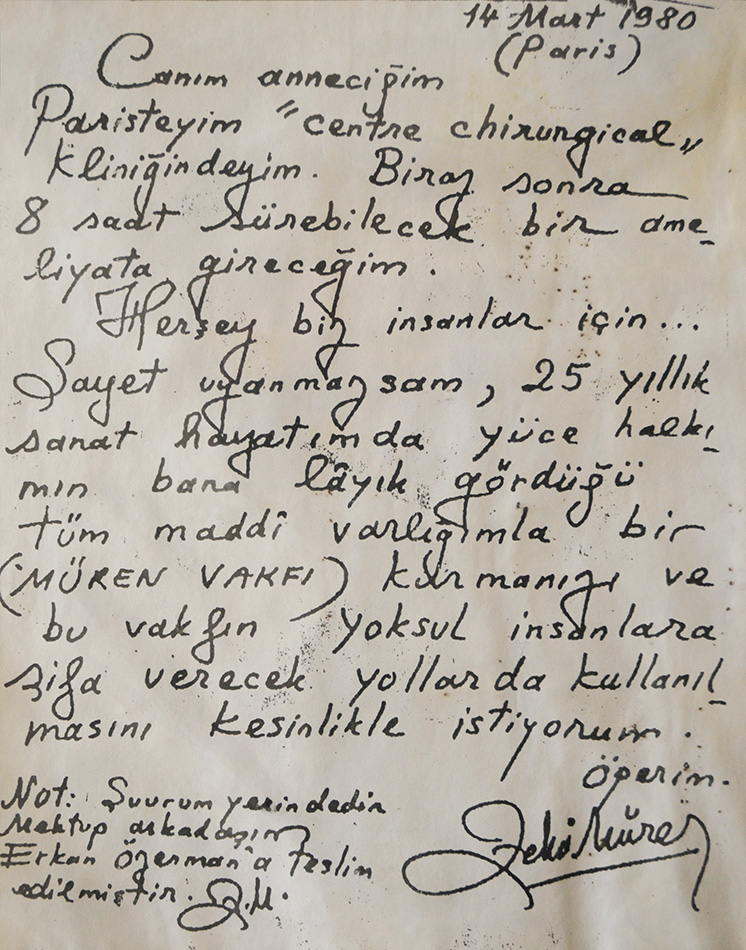 14 Mart 1980
(Paris)
Canım anneciğim
Paristeyim "centre chirurgical"
kliniğindeyim. Biraz sonra
8 saat sürebilecek bir ame_
liyata gireceğim.
Herşey biz insanlar için...
Şayet uyanmazsam, 25 yıllık
sanat hayatımda yüce halkı_
mın bana lâyık gördüğü
tüm maddî varlığımla bir
(MÜREN VAKFI) kurmanızı ve
bu vakfın yoksul insanlara
şifa verecek yollarda kullanıl_
masını kesinlikle istiyorum.
Öperim.
Zeki Müren
Not: Şuurum yerindedir
Mektup arkadaşım
Erkan Özerman'a teslim
edilmiştir. Z.M.